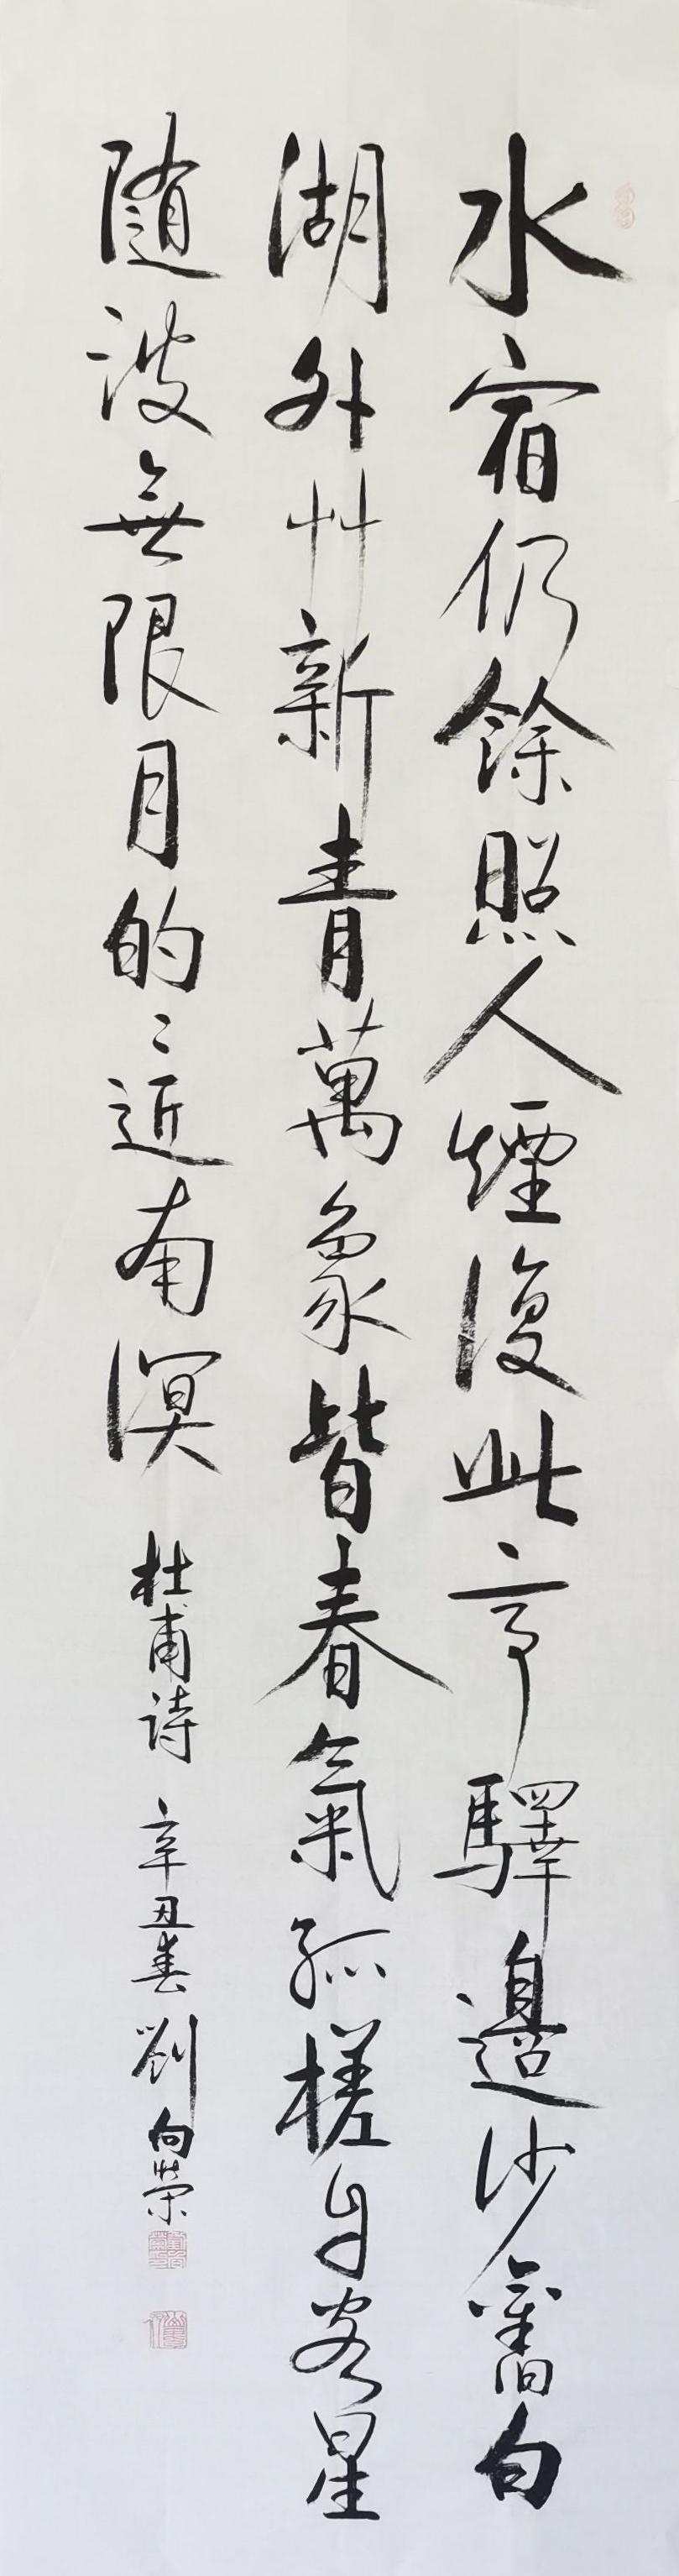 水宿仍餘照人煙復此亭驛邊沙舊白
湖外艸新青萬象皆春氣孤槎自客星
隨波無限月的〻近南溟
杜甫詩 辛丑春劉向榮